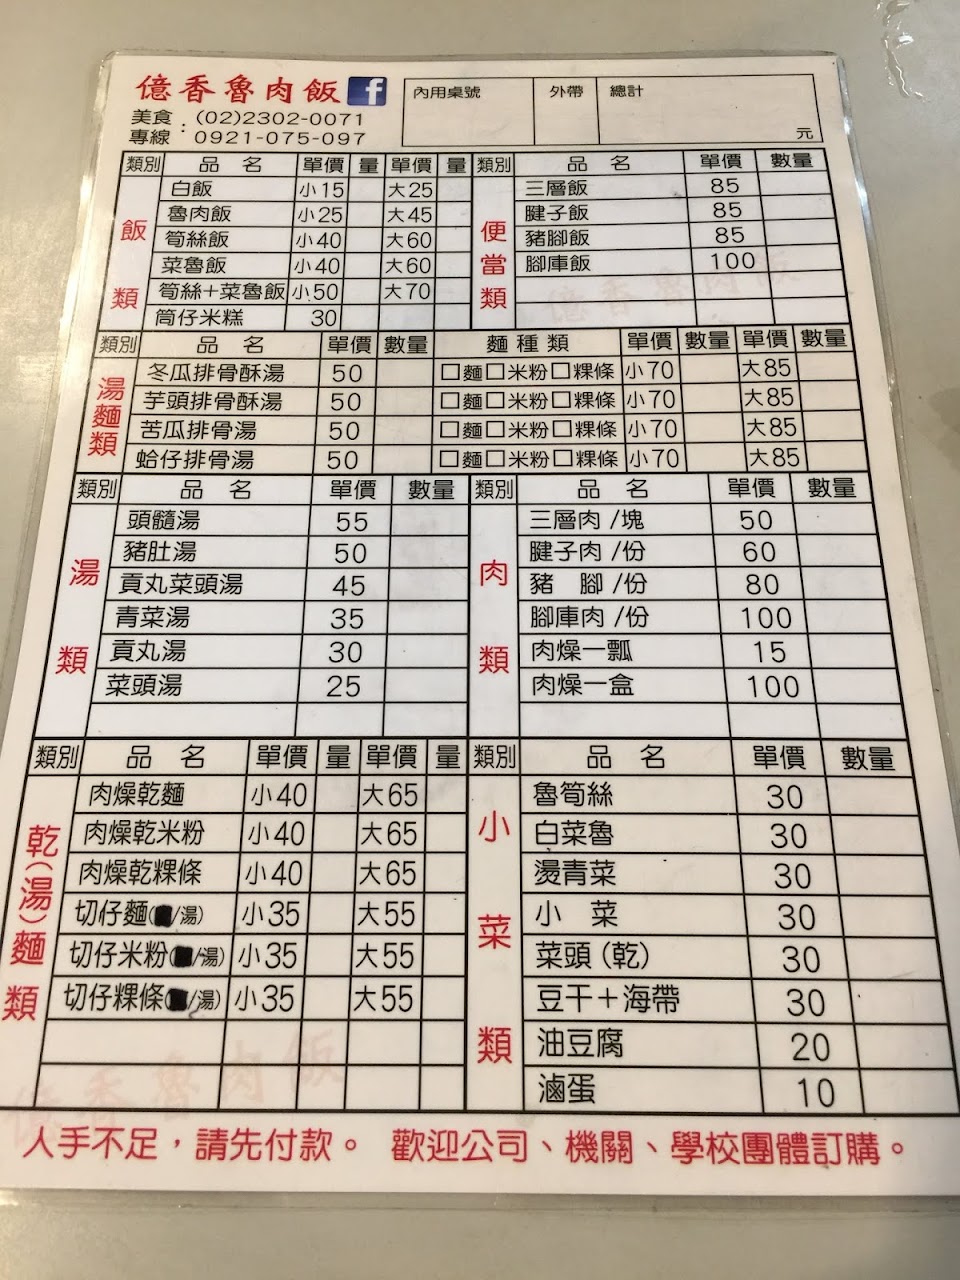 億香魯肉飯 f
美食專線：(02)2302-0071
0921-075-097
內用桌號 外帶 總計 元
類別 品名 單價 量 單價 量
飯類
白飯 小15 大25
魯肉飯 小25 大45
筍絲飯 小40 大60
菜魯飯 小40 大60
筍絲+菜魯飯 小50 大70
筒仔米糕 30
類別 品名 單價 數量
便當類
三層飯 85
腱子飯 85
豬腳飯 85
腳庫飯 100
億香魯肉飯
類別 品名 單價 數量 麵種類 單價 數量 單價
湯麵類
冬瓜排骨酥湯 50 □麵□米粉□粿條 小70 大85
芋頭排骨酥湯 50 □麵□米粉□粿條 小70 大85
苦瓜排骨湯 50 □麵□米粉□粿條 小70 大85
蛤仔排骨湯 50 □麵□米粉□粿條 小70 大85
類別 品名 單價 數量
湯類
頭髓湯 55
豬肚湯 50
貢丸菜頭湯 45
青菜湯 35
貢丸湯 30
菜頭湯 25
類別 品名 單價 數量
肉類
三層肉/塊 50
腱子肉/份 60
豬腳/份 80
腳庫肉/份 100
肉燥一瓢 15
肉燥一盒 100
類別 品名 單價 量 單價 量
乾(湯)麵類
肉燥乾麵 小40 大65
肉燥乾米粉 小40 大65
肉燥乾粿條 小40 大65
切仔麵(/湯) 小35 大55
切仔米粉(/湯) 小35 大55
切仔粿條(/湯) 小35 大55
億香魯肉飯
類別 品名 單價 數量
小菜類
魯筍絲 30
白菜魯 30
燙青菜 30
小菜 30
菜頭(乾) 30
豆干+海帶 30
油豆腐 20
滷蛋 10
人手不足，請先付款。 歡迎公司、機關、學校團體訂購。